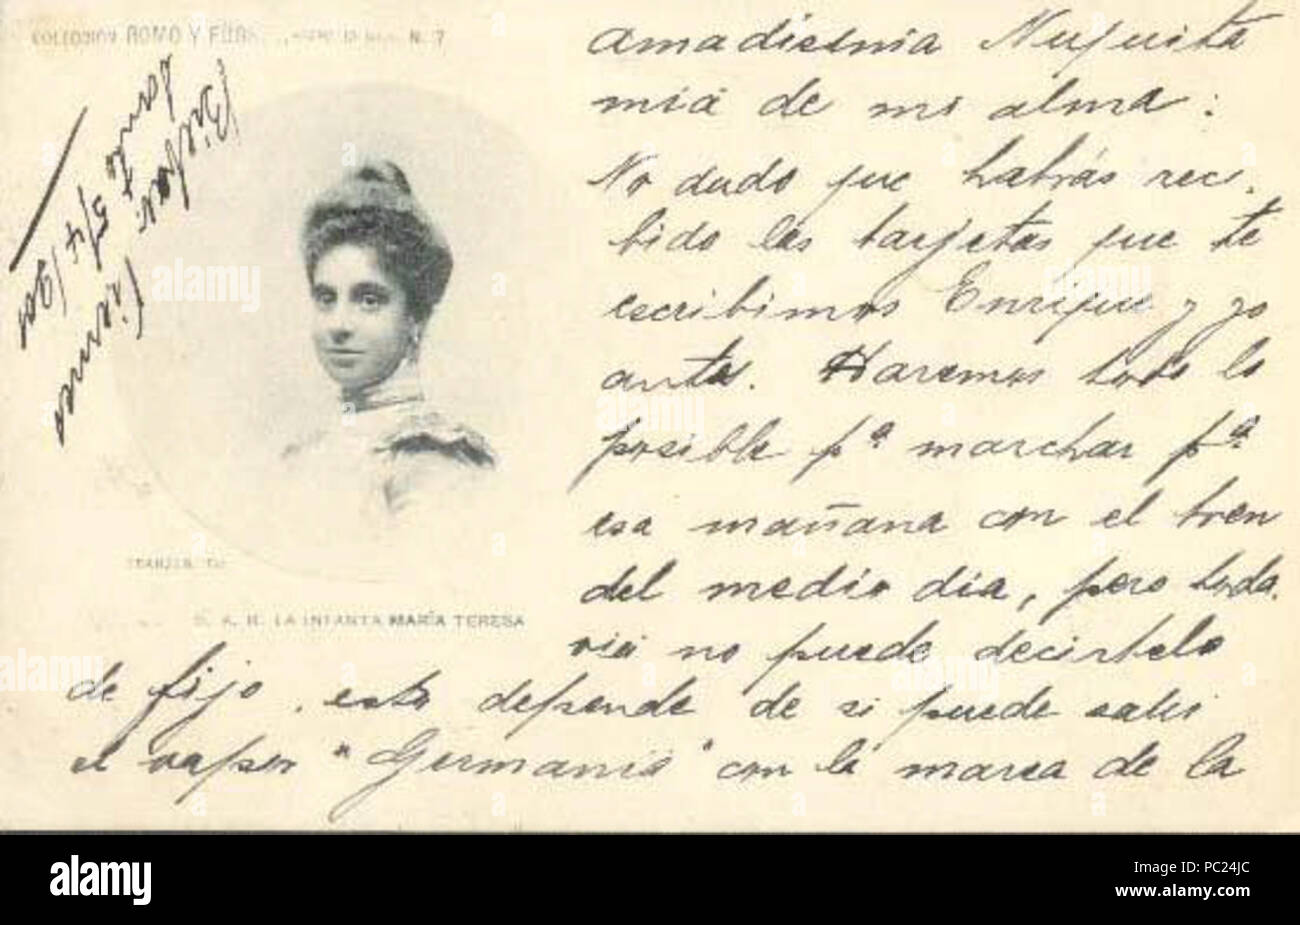 COLECCION ROMO Y FÜSSEL N. 7
Bilbao Viernes
Santo 5/4/901
amadisima Nuquita
mia de mi alma:
No dudo que habrás reci-
bido las tarjetas que te
escribimos Enrique y yo
antes. Haremos todo lo
posible pª marchar pª
esa mañana con el tren
del medio dia, pero toda-
via no puede decirtelo
de fijo, esto depende de si puede salir
el vapor "Germania" con la marea de la
S. A. R. LA INFANTA MARÍA TERESA
alamy
PC24JC
www.alamy.com